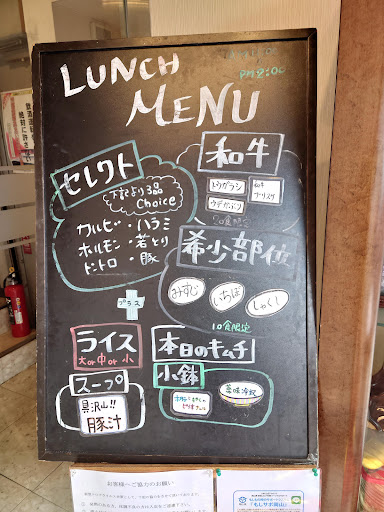 LUNCH
MENU
PM 2:00
セレクト
下記より3品
Choice
カルビ・ハラミ
ホルモン・若とり
トントロ・豚
和牛
トウガラシ
ウデカブリ
希少部位
みすじ
いちぼ
しゃくし
10食限定
プラス
ライス
大or中or小
スープ
具沢山!!
豚汁
本日のキムチ
小鉢
お客様へご協力のお願い